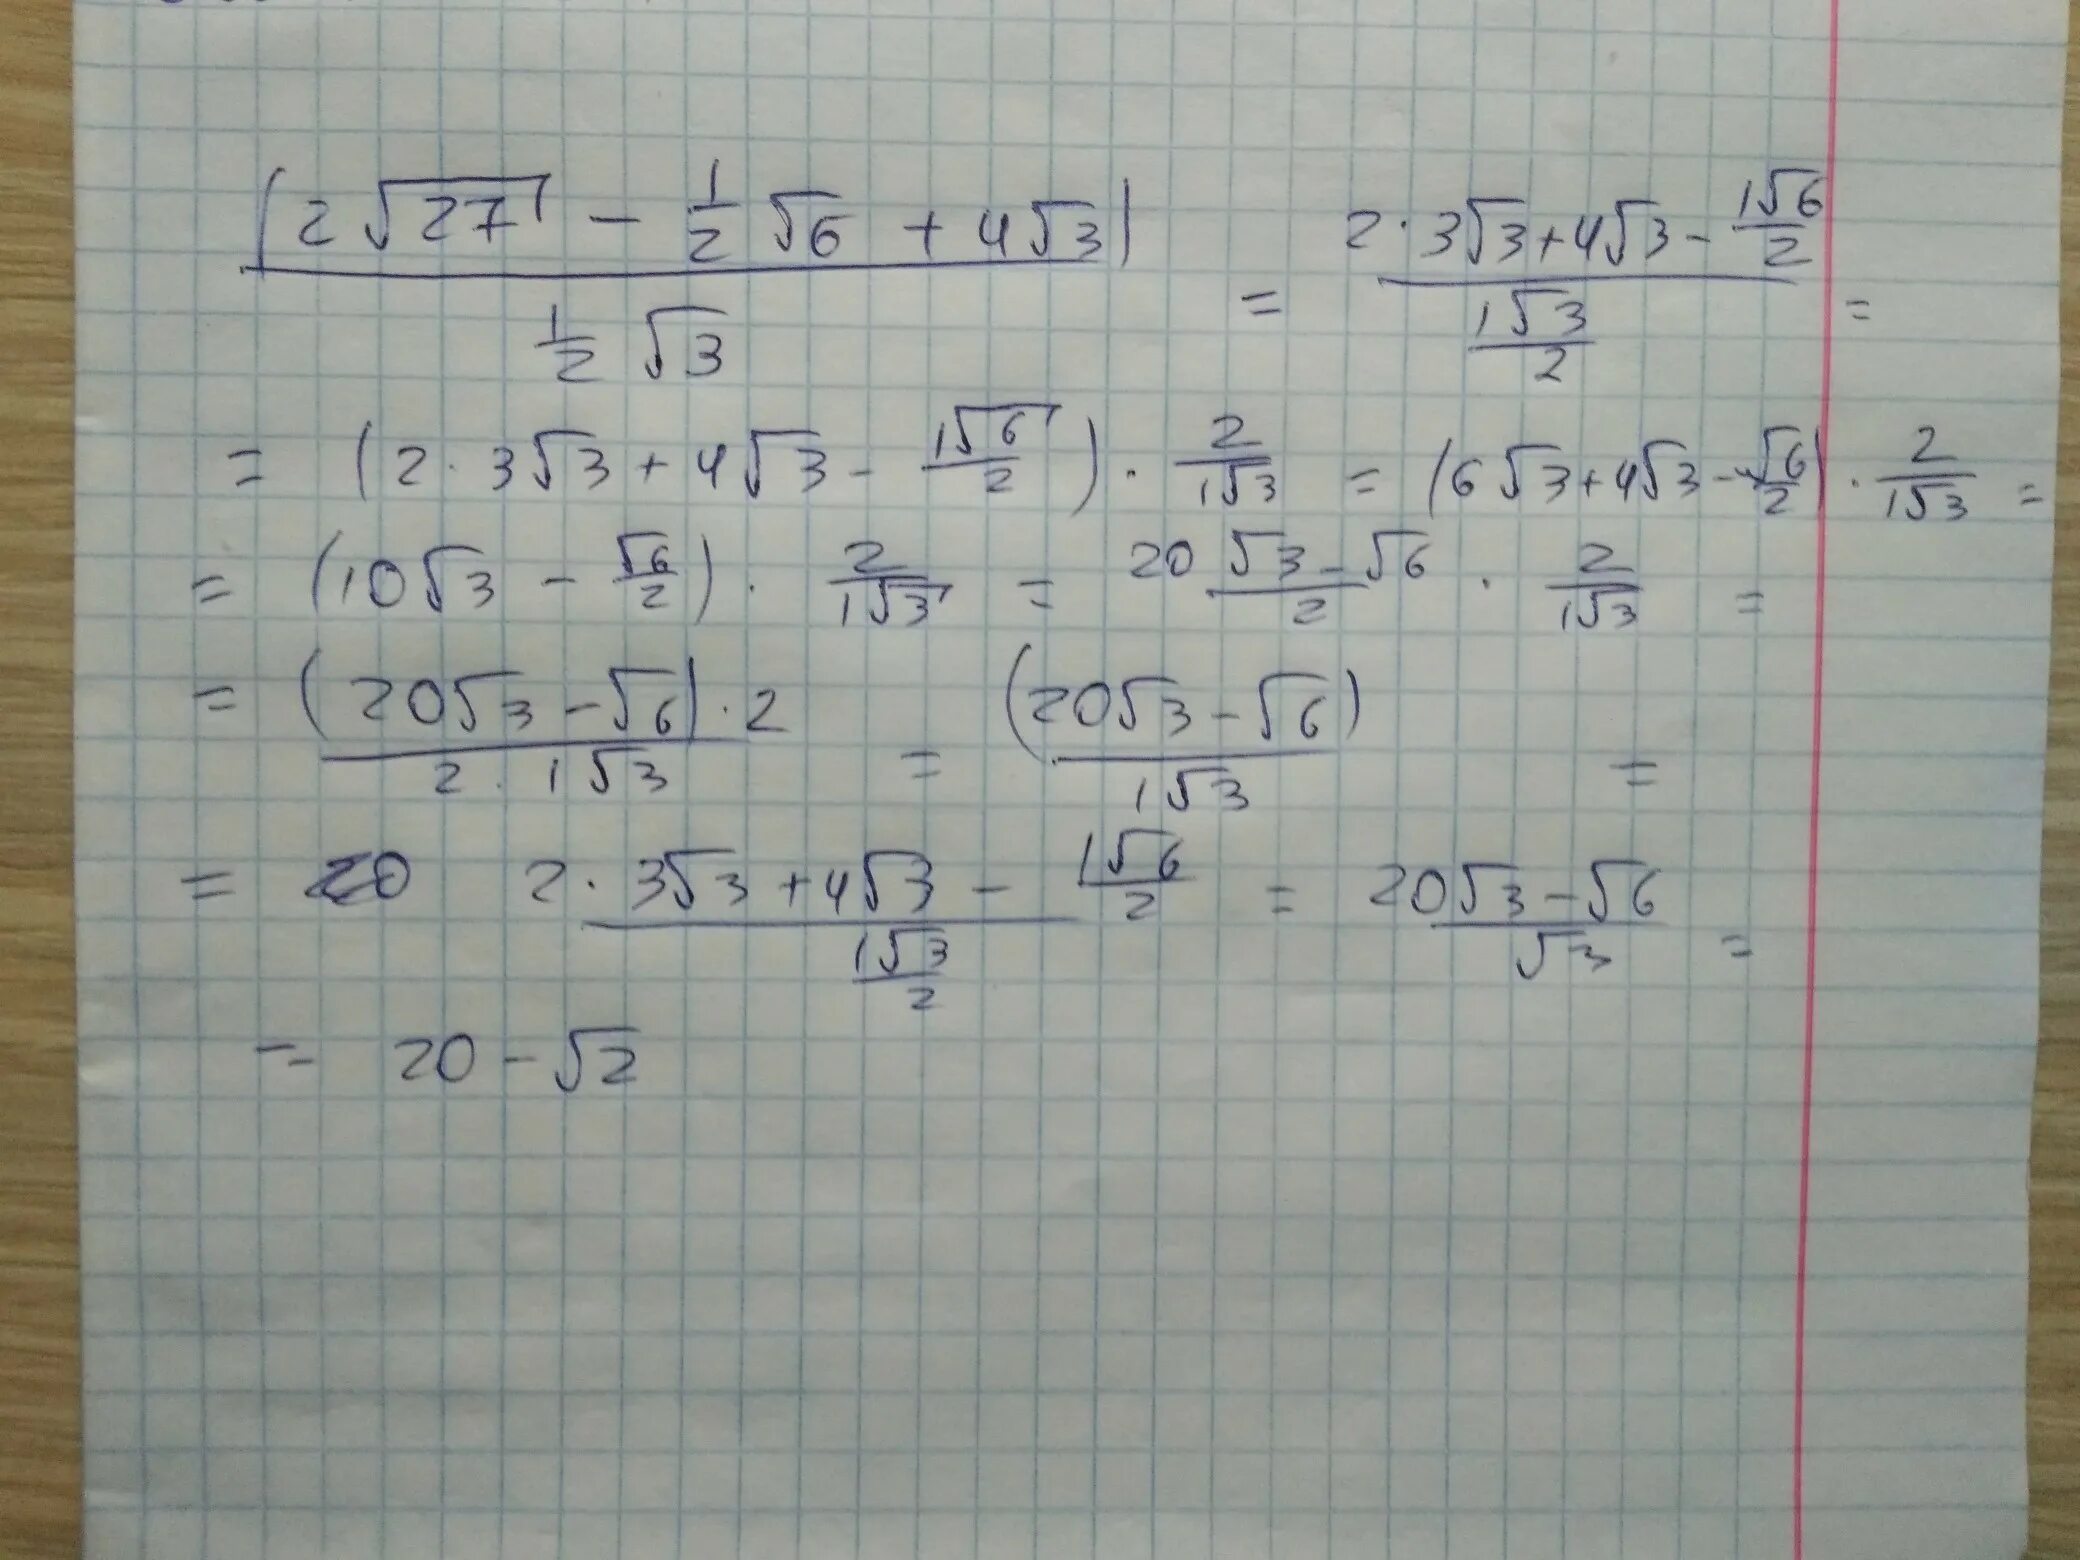 (2√27 − 1/2 √6 + 4√3) / (1/2 √3) = (2·3√3 + 4√3 − 1√6/2) / (1√3/2) =
= (2·3√3 + 4√3 − 1√6/2) · 2/1√3 = (6√3 + 4√3 − √6/2) · 2/1√3 =
= (10√3 − √6/2) · 2/1√3 = (20√3 − √6)/2 · 2/1√3 =
= (20√3 − √6)·2 / (2·1√3) = (20√3 − √6) / 1√3 =
= 20 (2·3√3 + 4√3 − 1√6/2) / (1√3/2) = (20√3 − √6) / √3 =
= 20 − √2